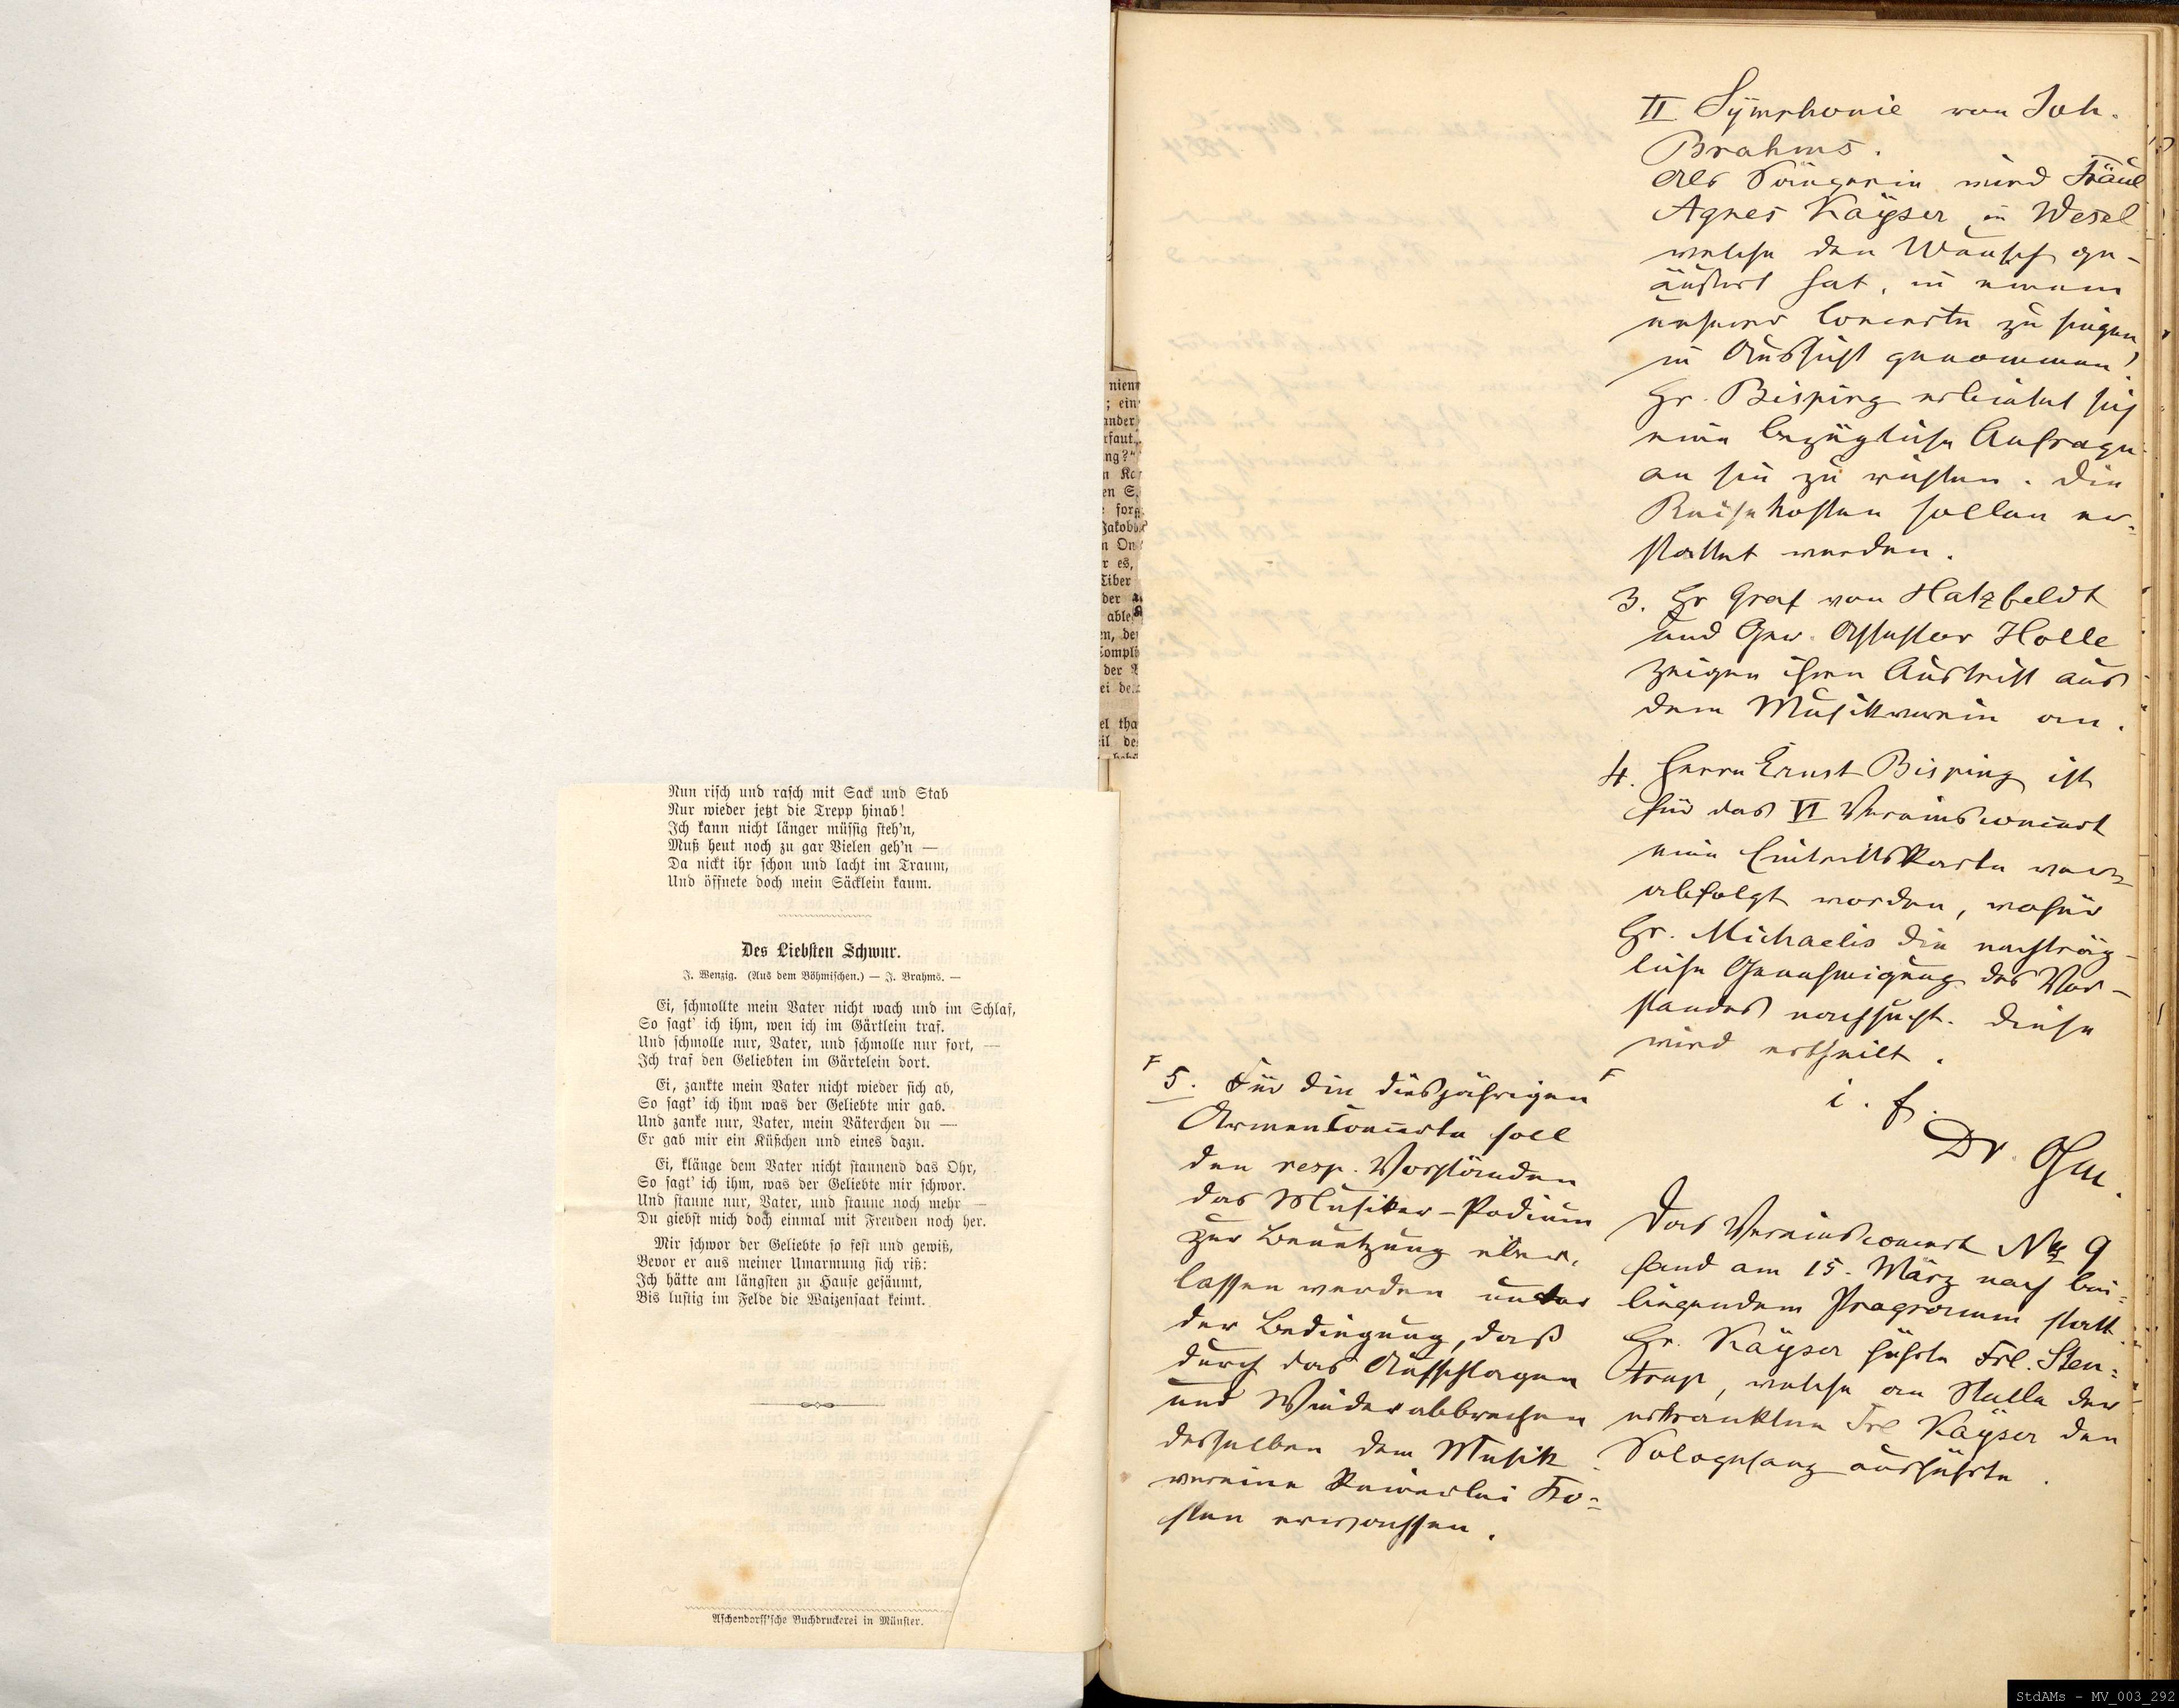 Nun risch und rasch mit Sack und Stab
Nur wieder jetzt die Trepp hinab!
Ich kann nicht länger müssig steh'n,
Muß heut noch zu gar Vielen geh'n —
Da nickt ihr schon und lacht im Traum,
Und öffnete doch mein Säcklein kaum.
Des Liebsten Schwur.
J. Wenzig. (Aus dem Böhmischen.) — J. Brahms. —
Ei, schmollte mein Vater nicht wach und im Schlaf,
So sagt' ich ihm, wen ich im Gärtlein traf.
Und schmolle nur, Vater, und schmolle nur fort, —
Ich traf den Geliebten im Gärtelein dort.
Ei, zankte mein Vater nicht wieder sich ab,
So sagt' ich ihm was der Geliebte mir gab.
Und zanke nur, Vater, mein Väterchen du —
Er gab mir ein Küßchen und eines dazu.
Ei, klänge dem Vater nicht staunend das Ohr,
So sagt' ich ihm, was der Geliebte mir schwor.
Und staune nur, Vater, und staune noch mehr —
Du giebst mich doch einmal mit Freuden noch her.
Mir schwor der Geliebte so fest und gewiß,
Bevor er aus meiner Umarmung sich riß:
Ich hätte am längsten zu Hause gesäumt,
Bis lustig im Felde die Waizensaat keimt.
Aschendorff'sche Buchdruckerei in Münster.
nien
; ein
ander
faut
ng?"
n Ka
en S.
forg
Jakob
n On
r es,
Tiber
der
able
en, de
Compli
der
ei de
el tha
il de
II. Symphonie von Joh.
Brahms.
Als Sängerin wird Fräul
Agnes Kayser in Wesel
welche den Wunsch ge-
äußert hat, in einem
unserer Concerte zu singen
in Aussicht genommen.
Hr. Bisping erbietet sich
eine bezügliche Anfrage
an sie zu richten. Die
Reisekosten sollen er-
stattet werden.
3. Hr Graf von Hatzfeldt
und Ger. Assessor Holle
zeigen ihren Austritt aus
dem Musikverein an.
4. Herrn Ernst Bisping ist
für das VI Vereinsconcert
eine Eintrittskarte ver-
abfolgt worden, wofür
Hr. Michaelis die nachträg-
liche Genehmigung des Vor-
standes nachsucht. Diese
wird ertheilt.
i. f.
Dr. Ohm.
5. Für die diesjährigen
Armenconcerte soll
den resp. Vorständen
das Musiker-Podium
zur Benutzung über-
lassen werden unter
der Bedingung, daß
durch das Aufschlagen
und Wiederabbrechen
desselben dem Musik
vereine keinerlei Ko-
sten erwachsen.
Das Vereinsconcert No 9
fand am 15. März nach bei-
liegendem Programm statt.
Hr. Kayser führte Frl. Sten-
trup, welche an Stelle der
erkrankten Frl Kayser den
Sologesang ausführte.
StdAMs - MV_003_292